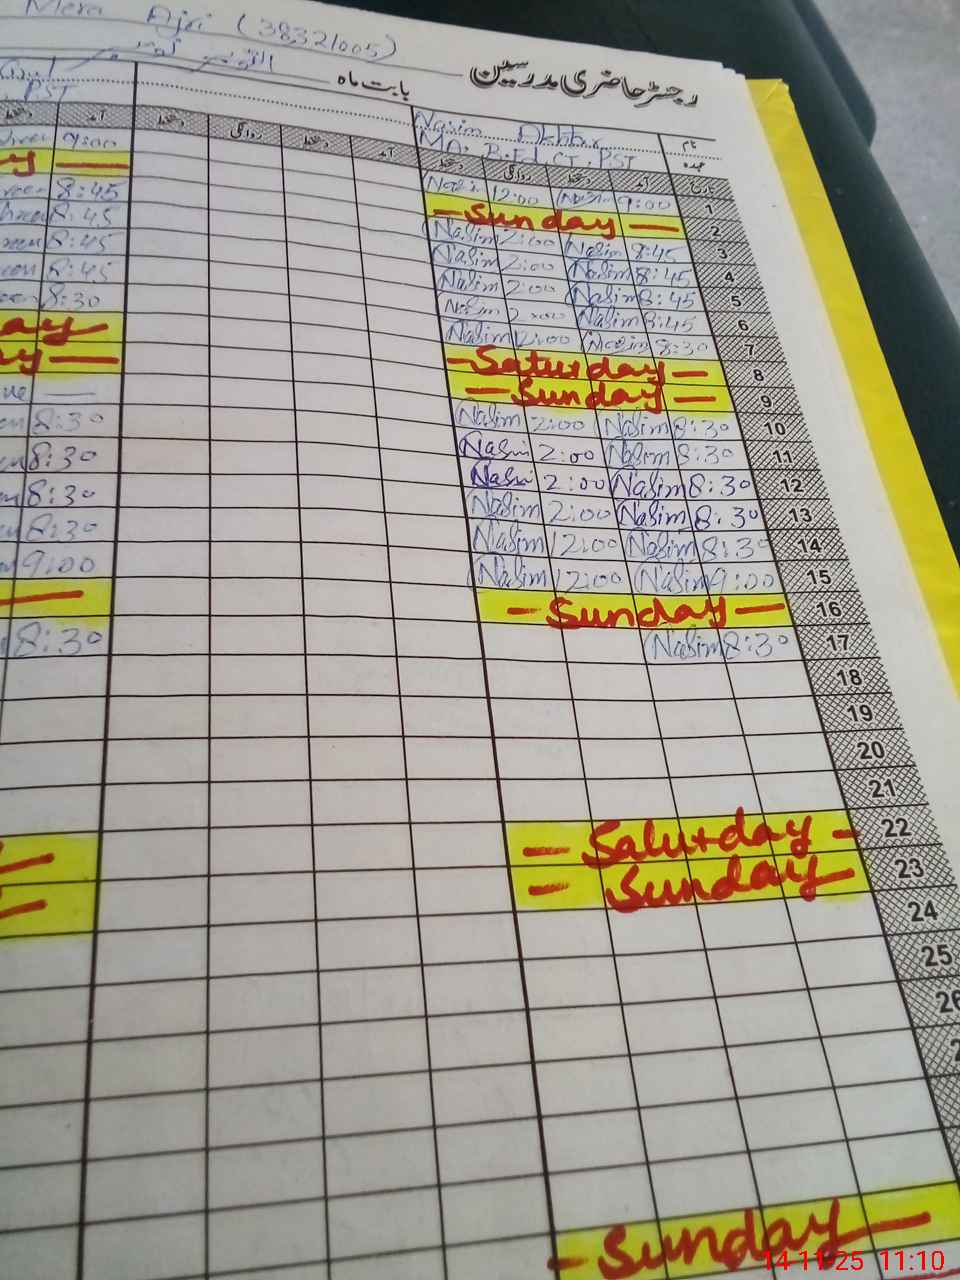 Mera Ajri (38321005)
رجسٹر حاضری مدرسین
بابت ماہ
نام Nasim Akhtar
عہدہ MA, B.Ed, CT, PST
PST
تاریخ آمد دستخط روانگی دستخط آمد دستخط روانگی دستخط آمد دستخط
1 9:00 Nasim 12:00 Nasim 9:00
2 - Sunday -
3 8:45 Nasim 2:00 Nasim 8:45
4 8:45 Nasim 2:00 Nasim 8:45
5 8:45 Nasim 2:00 Nasim 8:45
6 8:45 Nasim 2:00 Nasim 8:45
7 8:30 Nasim 12:00 Nasim 8:30
8 - Saturday -
9 - Sunday -
10 8:30 Nasim 2:00 Nasim
11 8:30 Nasim 2:00 Nasim 8:30
12 8:30 Nasim 2:00 Nasim 8:30
13 8:30 Nasim 2:00 Nasim 8:30
14 8:30 Nasim 12:00 Nasim 8:30
15 9:00 Nasim 12:00 Nasim 9:00
16 - Sunday -
17 8:30 Nasim 8:30
18
19
20
21
22 - Saturday -
23 - Sunday -
24
25
- Sunday -
14 11 25 11:10